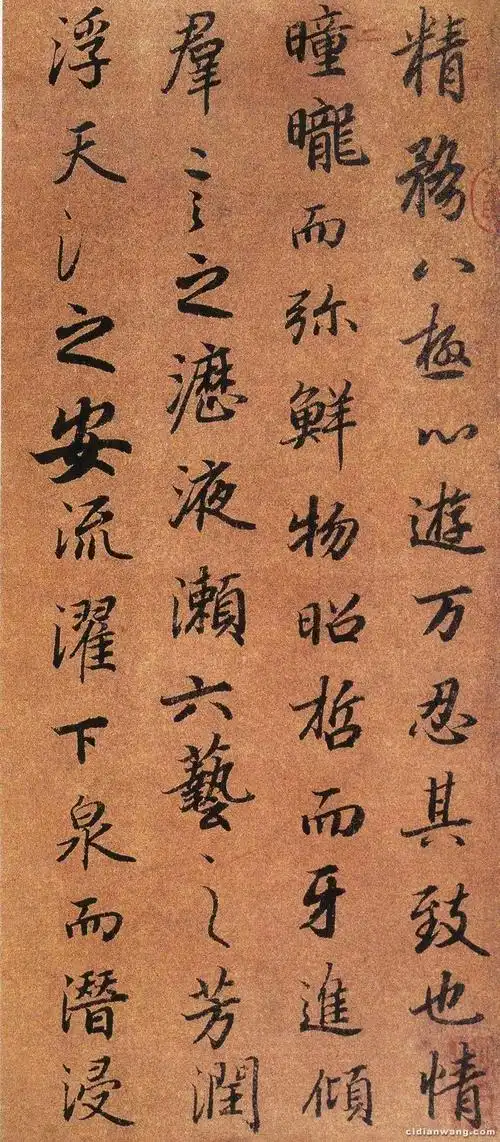 精務八極心遊万忍其致也情
曈曨而弥鮮物昭哲而牙進傾
羣言之瀝液瀨六藝之芳潤
浮天氵之安流濯下泉而潛浸
cidianwang.com